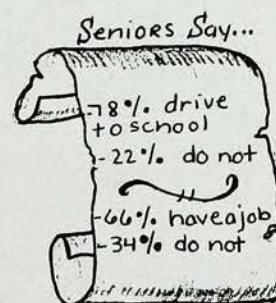 Seniors Say...
-78% drive
to school
-22% do not
-66% have a job
-34% do not